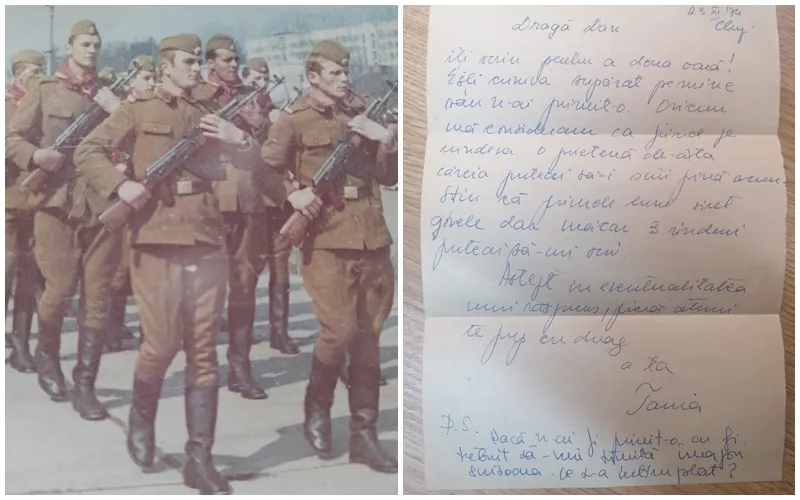 23 XI 74
Cluj
Dragă Dan
îți scriu pentru a doua oară!
Ești cumva supărat pe mine
sau n-ai primit-o. Oricum
mă consideram ca fiind pe
undeva o prietenă de-a ta
căreia puteai să-i scrii pînă acum.
Știu că primele luni sînt
grele dar măcar 3 rînduri
puteai să-mi scrii.
Aștept în eventualitatea
unui răspuns, pînă atunci
te pup cu drag
a ta
Tania
P.S. Dacă n-ai fi primit-o, ar fi
trebuit să-mi trimită înapoi
Ce s-a întîmplat?